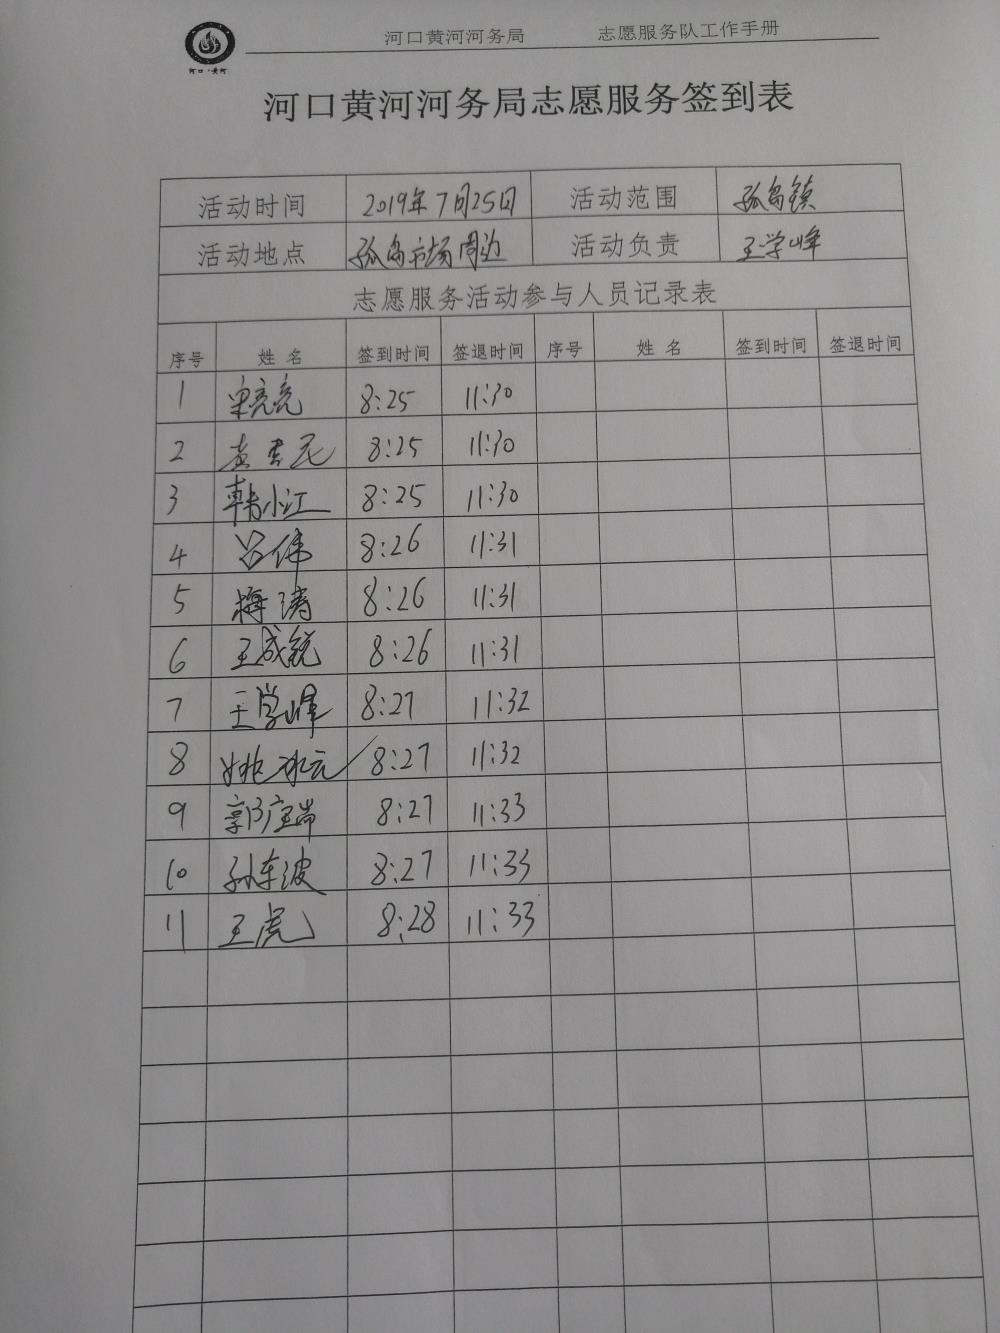 河口·黄河
河口黄河河务局 志愿服务队工作手册
河口黄河河务局志愿服务签到表
活动时间 2019年7月25日 活动范围 孤岛镇
活动地点 孤岛市场周边 活动负责 王学峰
志愿服务活动参与人员记录表
序号 姓名 签到时间 签退时间 序号 姓名 签到时间 签退时间
1 亮亮 8:25 11:30
2 黄 8:25 11:30
3 韩小江 8:25 11:30
4 吕伟 8:26 11:31
5 梅涛 8:26 11:31
6 王成锐 8:26 11:31
7 王学峰 8:27 11:32
8 姚冰元 8:27 11:32
9 郭 8:27 11:33
10 孙东波 8:27 11:33
11 王虎 8:28 11:33